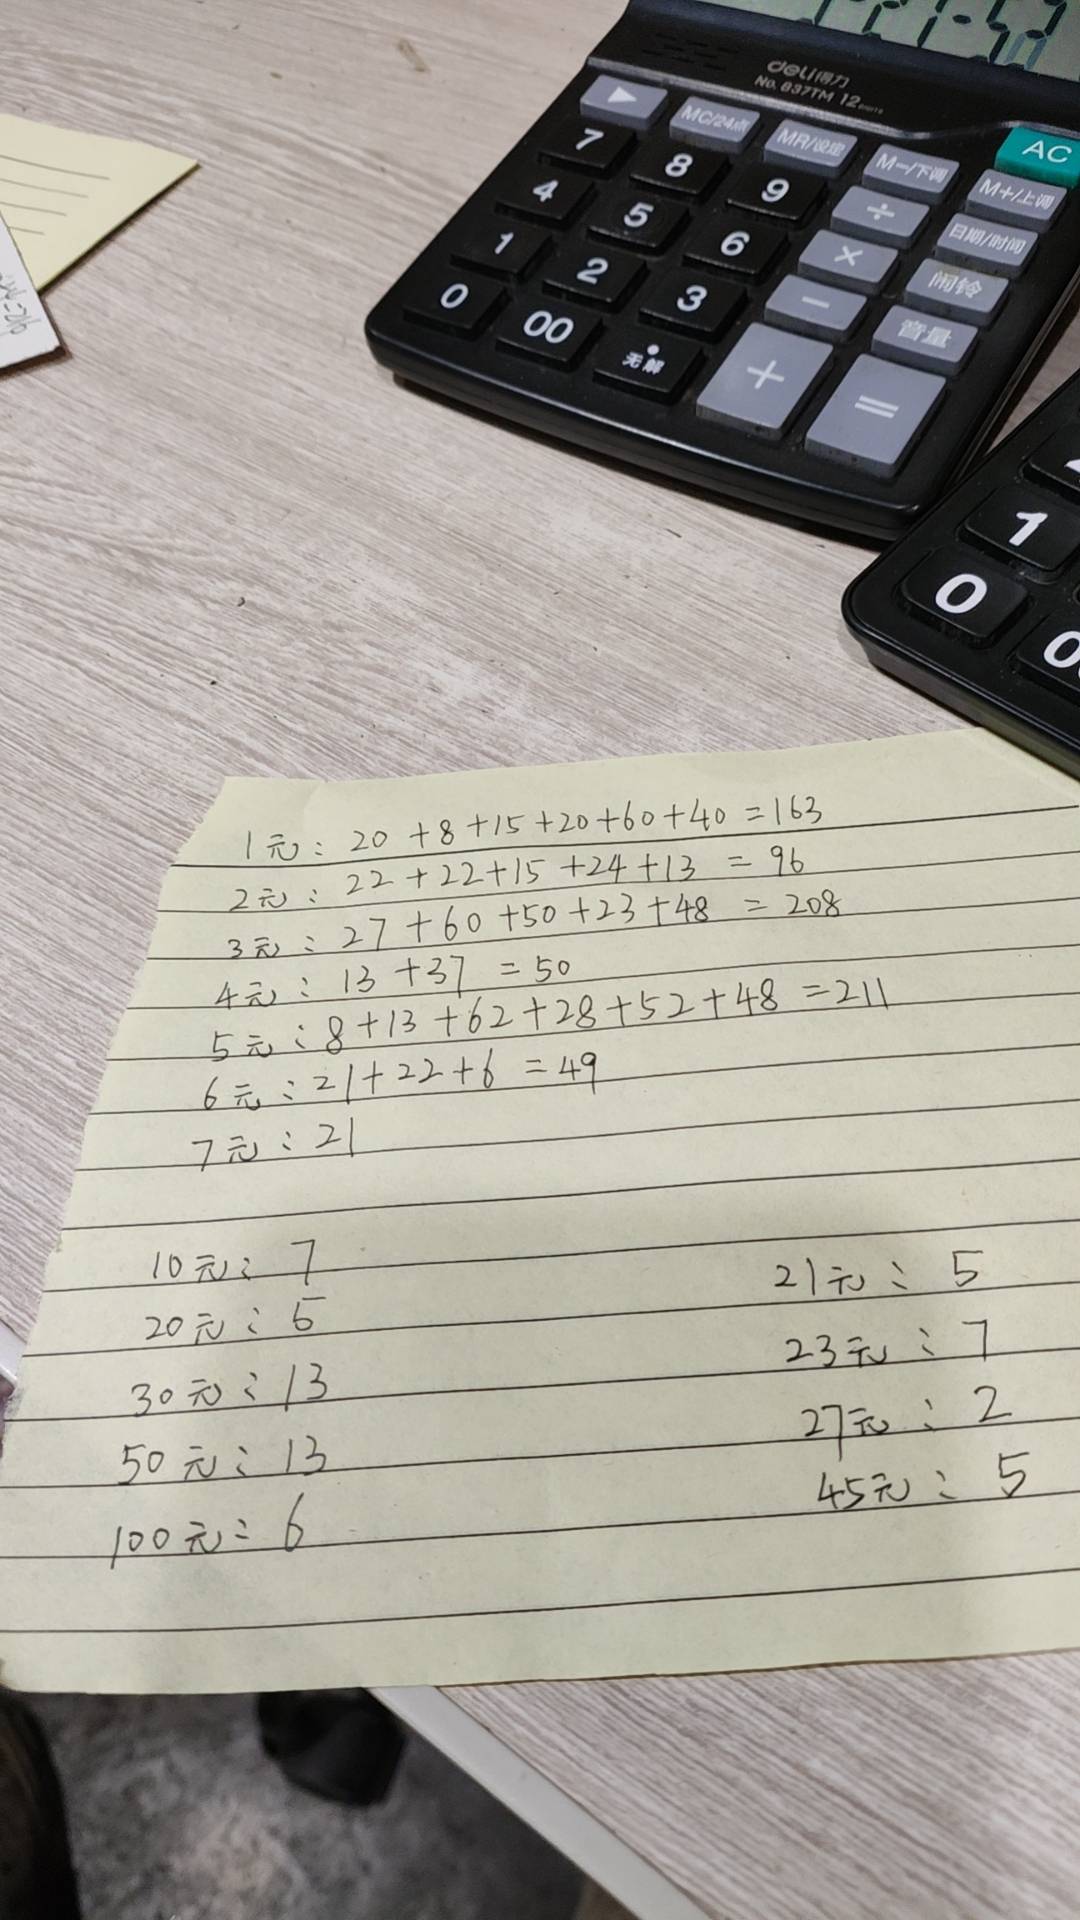 deli得力
No. 837TM 12 DIGITS
MC/24点 MR/设定 M-/下调 M+/上调 AC
7 8 9 ÷ 日期/时间
4 5 6 × 闹铃
1 2 3 - 音量
0 00 无解 + =
1
0
1元: 20+8+15+20+60+40=163
2元: 22+22+15+24+13=96
3元: 27+60+50+23+48=208
4元: 13+37=50
5元: 8+13+62+28+52+48=211
6元: 21+22+6=49
7元: 21
10元: 7
20元: 5
30元: 13
50元: 13
100元: 6
21元: 5
23元: 7
27元: 2
45元: 5